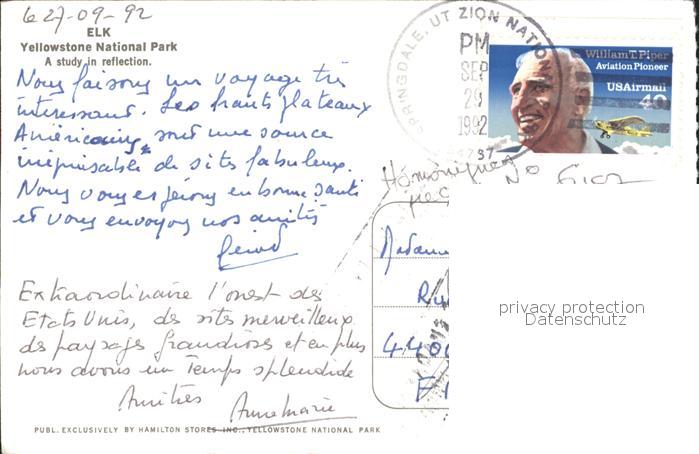 le 27-09-92
ELK
Yellowstone National Park
A study in reflection.
Nous faisons un voyage très
intéressant. Les hauts plateaux
Américains sont une source
inépuisable de sites fabuleux.
Nous vous espérons en bonne santé
et vous envoyons nos amitiés
Extraordinaire l'ouest des
Etats Unis, des sites merveilleux
des paysages grandioses et en plus
nous avons un Temps splendide
Amitiés Annemarie
PUBL. EXCLUSIVELY BY HAMILTON STORES INC., YELLOWSTONE NATIONAL PARK
SPRINGDALE, UT ZION NATIO
PM
SEP
29
1992
84767
William T. Piper
Aviation Pioneer
USAirmail
40
Madame
Ru
4400
privacy protection
Datenschutz